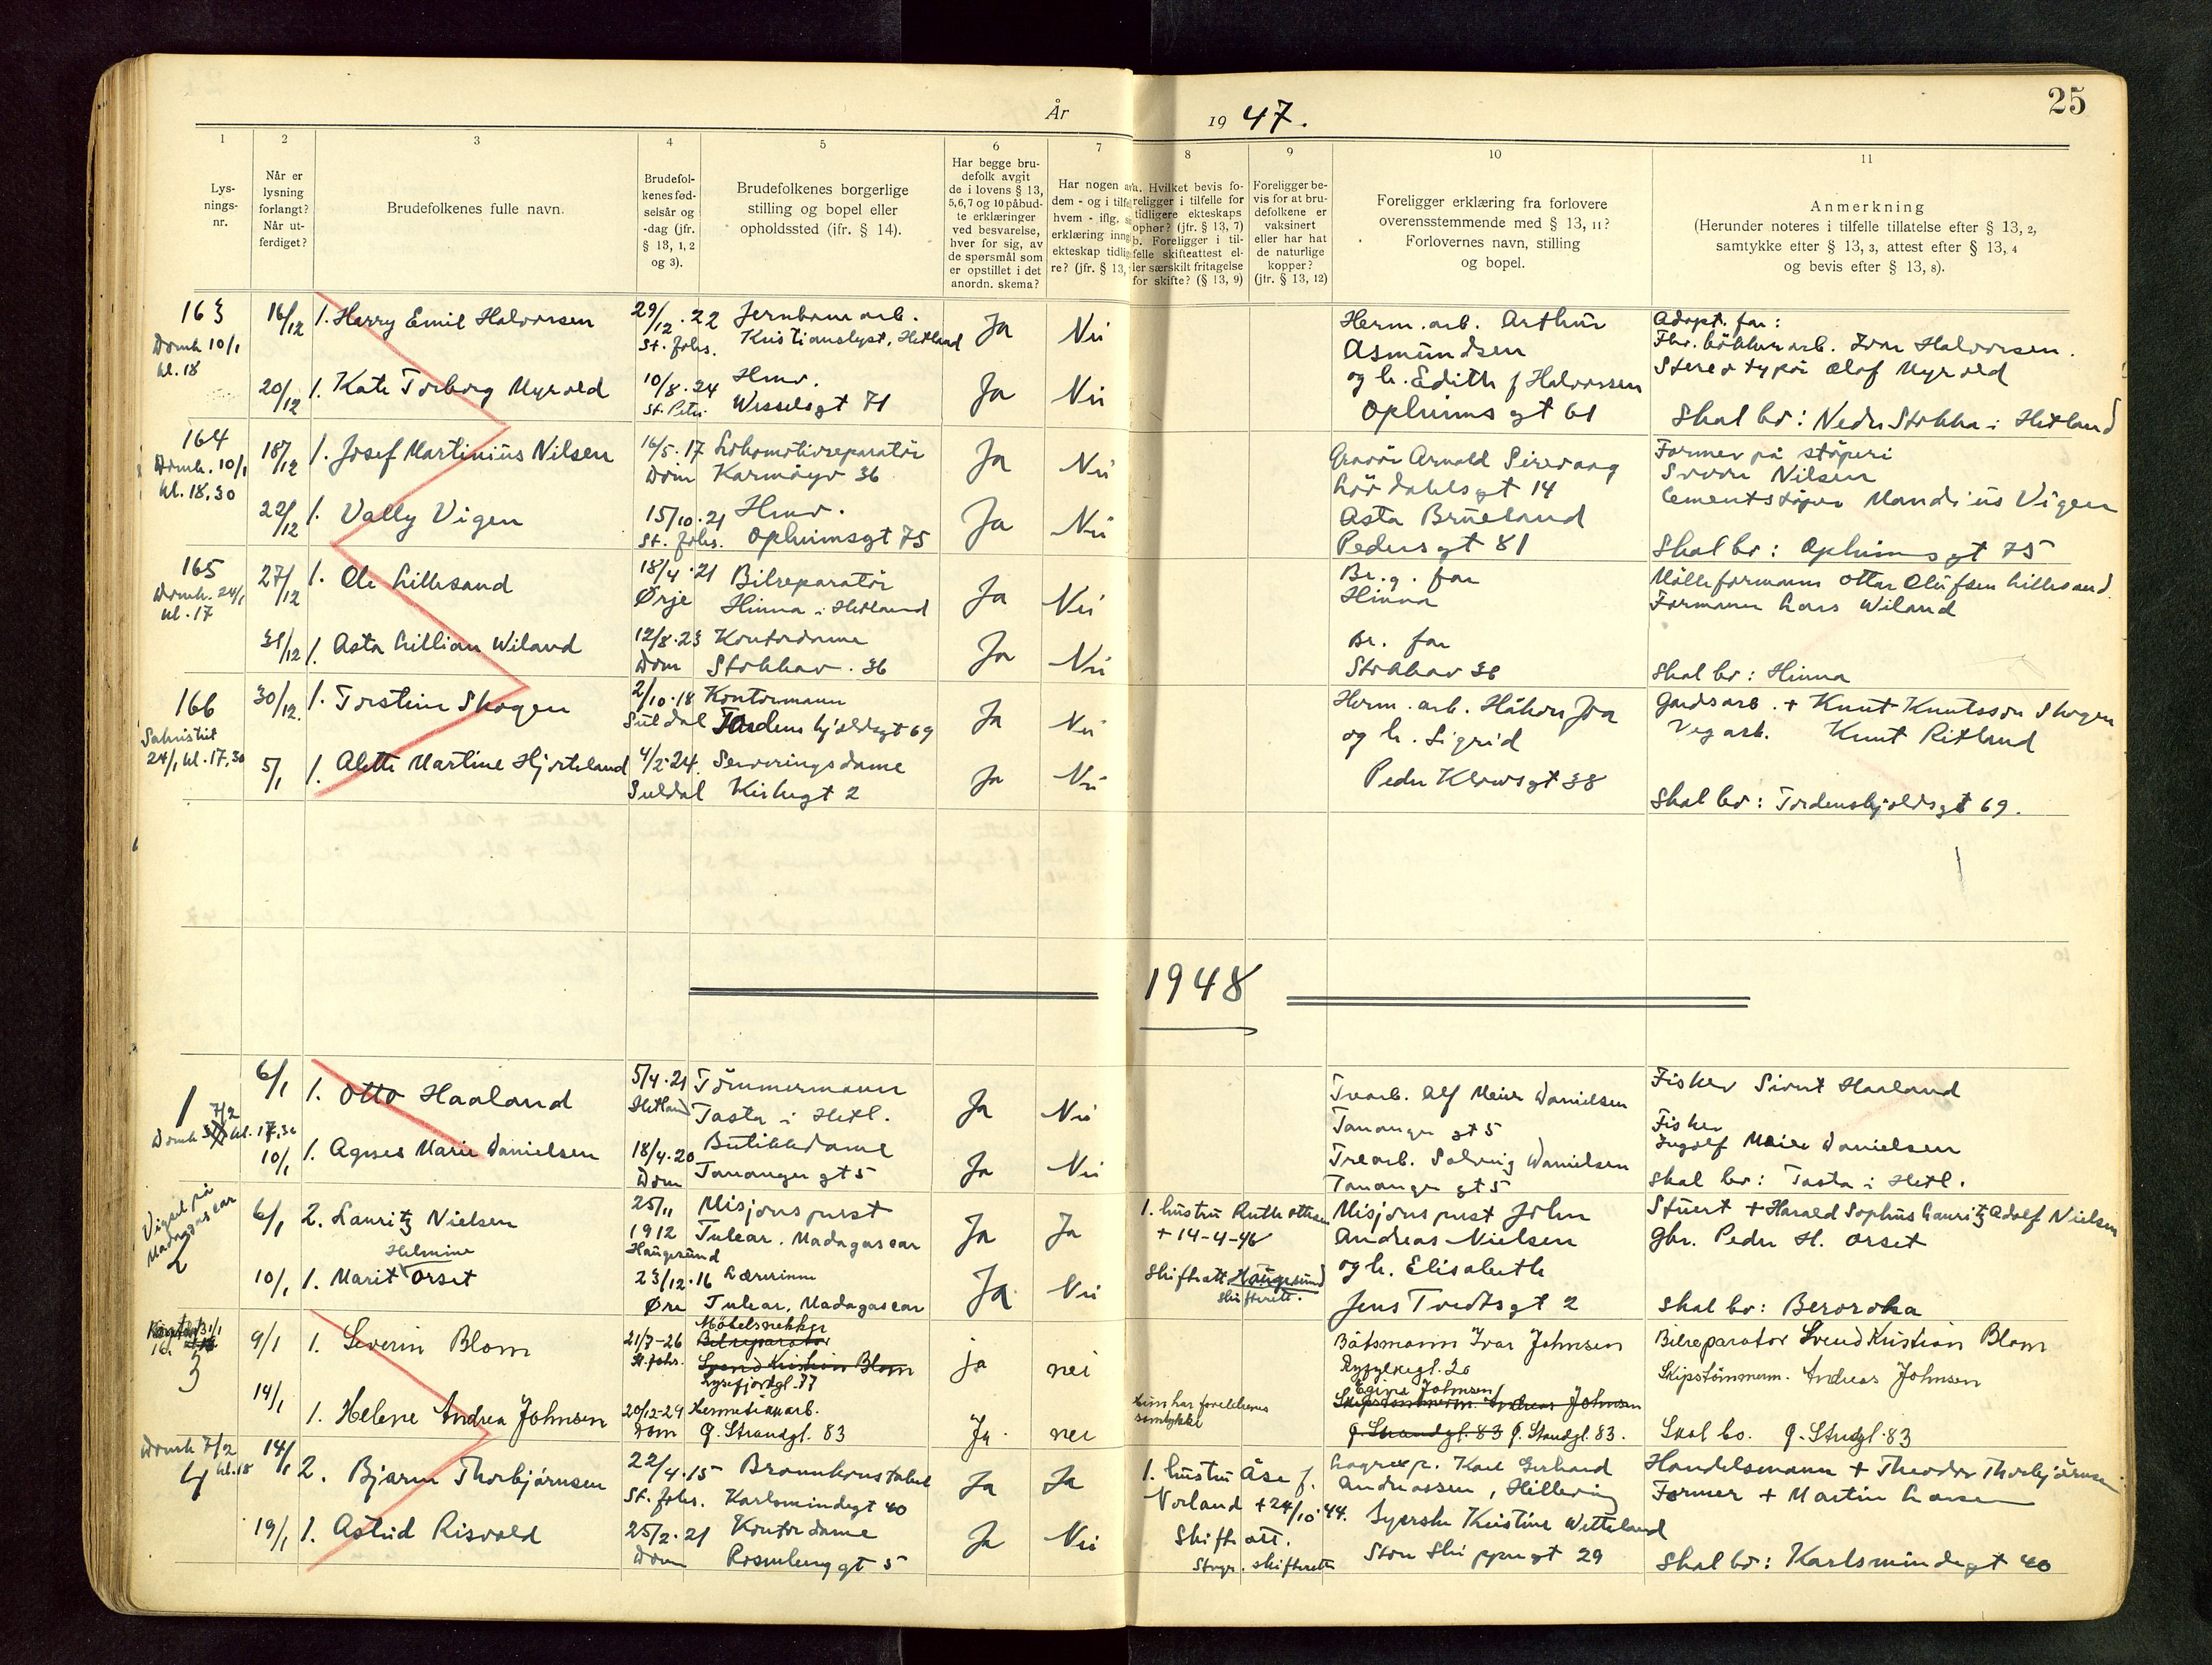 25
År 1947.
1 2 3 4 5 6 7 8 9 10 11
Lys-
nings-
nr.
Når er
lysning
forlangt?
Når ut-
ferdiget?
Brudefolkenes fulle navn.
Brudefol-
kenes fød-
selsår og
-dag (jfr.
§ 13, 1, 2
og 3).
Brudefolkenes borgerlige
stilling og bopel eller
opholdssted (ifr. § 14).
Har begge bru-
defolk avgit
de i lovens § 13,
5,6,7 og 10 påbud-
te erklæringer
ved besvarelse,
hver for sig, av
de spørsmål som
er opstillet i det
anordn. skema?
Har nogen av
dem - og i tilfel
hvem - iflg.
erklæring inng
ekteskap tidlig
re? (jfr. § 13,
a. Hvilket bevis fo-
religger i tilfelle for
tidligere ekteskaps
ophør? (jfr. § 13, 7)
b. Foreligger i til-
felle skifteattest el-
ler særskilt fritagelse
for skifte? (§ 13, 9)
Foreligger be-
vis for at bru-
defolkene er
vaksinert
eller har hat
de naturlige
kopper?
(jfr. § 13, 12)
Foreligger erklæring fra forlovere
overensstemmende med § 13, 11?
Forlovernes navn, stilling
og bopel.
Anmerkning
(Herunder noteres i tilfelle tillatelse efter § 13, 2,
samtykke efter § 13, 3, attest efter § 13, 4
og bevis efter § 13, 8).
163
Domk 10/1
kl. 18
16/12 1. Harry Emil Halvorsen
29/12.22
St. Johs.
Jernbanearb.
Kristianslyst, Hetland
Ja Nei
Herm. arb. Arthur
Asmundsen
Adopt. far:
Ivar Halvorsen.
20/12 1. Kate Torborg Myrvold
10/8.24
St. Petri
Husv.
Wesselsgt 71
Ja Nei
og h. Edith f Halvorsen
Opheimsgt 61
Stereotypør Olaf Myrvold
Skal bo: Nedre Stokka i Hetland
164
Domk. 10/1
kl. 18,30
18/12 1. Josef Martinius Nilsen
16/5.17
Dom
Lokomotivreparatør
Karmøyv 36
Ja Nei
Gravør Arnold Sirevaag
Løvdahlsgt 14
Former på støperi
Nilsen
22/12 1. Vally Vigen
15/10.21
St. Johs.
Husv.
Opheimsgt 75
Ja Nei
Asta Brueland
Pedersgt 81
Cementstøper Mandius Vigen
Skal bo: Opheimsgt 75
165
Domk. 24/1
kl. 17
27/12 1. Ole Lillesand
18/4.21
Ørje
Bilreparatør
Hinna i Hetland
Ja Nei
Br.g. far
Hinna
Mølleformann Ottar Olufsen Lillesand.
Formann Lars Wiland
31/12 1. Asta Lillian Wiland
12/8.23
Dom
Kontordame
Stokkav. 36
Ja Nei
Br. far
Stokkav 36
Skal bo: Hinna
166
Sakristiet
24/1 kl. 17,30
30/12. 1. Torstein Skogen
2/10.18
Suldal
Kontormann
Tordenskjoldsgt 69
Ja Nei
Herm. arb. Håkon Joa
og h. Sigrid
Gardsarb. + Knut Knutsson Skogen
Vegarb. Knut Ritland
5/1 1. Alette Martine Hjorteland
4/2.24.
Suldal
Serveringsdame
Kirkegt 2
Ja Nei
Peder Klowsgt 38
Skal bo: Tordenskjoldsgt 69.
1948
1
7/2
Domk kl. 17,30
6/1 1. Otto Haaland
5/4.21
Hetland
Tømmermann
Tasta i Hetl.
Ja Nei
Trearb. Alf Meier Danielsen
Tanangergt 5
Fisker Sivert Haaland
10/1 1. Agnes Marie Danielsen
18/4.20
Dom
Butikkdame
Tanangergt 5
Ja Nei
Trearb. Solveig Danielsen
Tanangergt 5
Fisker
Ingolf Meier Danielsen
Skal bo: Tasta i Hetl.
Vigsel på
Madagascar
2
6/1 2. Lauritz Nielsen
25/11
1912
Haugesund
Misjonsprest
Tulear, Madagascar
Ja Ja
1. hustru Ruth Ottesen
+ 14-4-46
Misjonsprest John
Andreas Nielsen
Stuert + Harald Sophus Lauritz Adolf Nielsen
10/1 1. Marit Helmine Orset
23/12.16
Øre
Lærerinne
Tulear, Madagascar
Ja Nei
Skifteatt. Haugesund
skifterett.
og h. Elisabeth
Jens Tvedtsgt 2
Gbr. Peder H. Orset
Skal bo: Beroroha
31/1
3
9/1 1. Severin Blom
21/7-26
St. Johs.
Møbelsnekker
Bilreparatør
Svend Kristian Blom
Lysefjordgt. 77
ja nei
Båtsmann Ivar Johnsen
Ryfylkegt. 20
Bilreparatør Svend Kristian Blom
14/1 1. Helene Andrea Johnsen
20/12-29
Dom
Hermetikkarb.
Ø. Strandgt. 83
Ja. nei
har foreldrenes
samtykke
Egina Johnsen
Skipstømmerm. Andreas Johnsen
Ø. Strandgt. 83 Ø. Standgt. 83.
Skipstømmerm. Andreas Johnsen
Skal bo. Ø. Strdgt. 83
Domk 7/2
kl. 18
4
14/1 2. Bjarne Thorbjørnsen
22/4.15
St. Johs.
Brannkonstabel
Karlsmindegt 40
Ja Ja
1. hustru Åse f.
Norland + 24/10.44.
Lagereksp. Karl Gerhard
Andreassen, Hillevåg
Handelsmann + Theodor Thorbjørnsen
Former + Martin Larsen
19/1 1. Astrid Risvold
25/2.21
Dom
Kontordame
Rosenberggt 5
Ja Nei
Skifteatt.
Stvgr. skifterett
Syerske Kristine Wetteland
Store Skippergt 29
Skal bo: Karlsmindegt 40